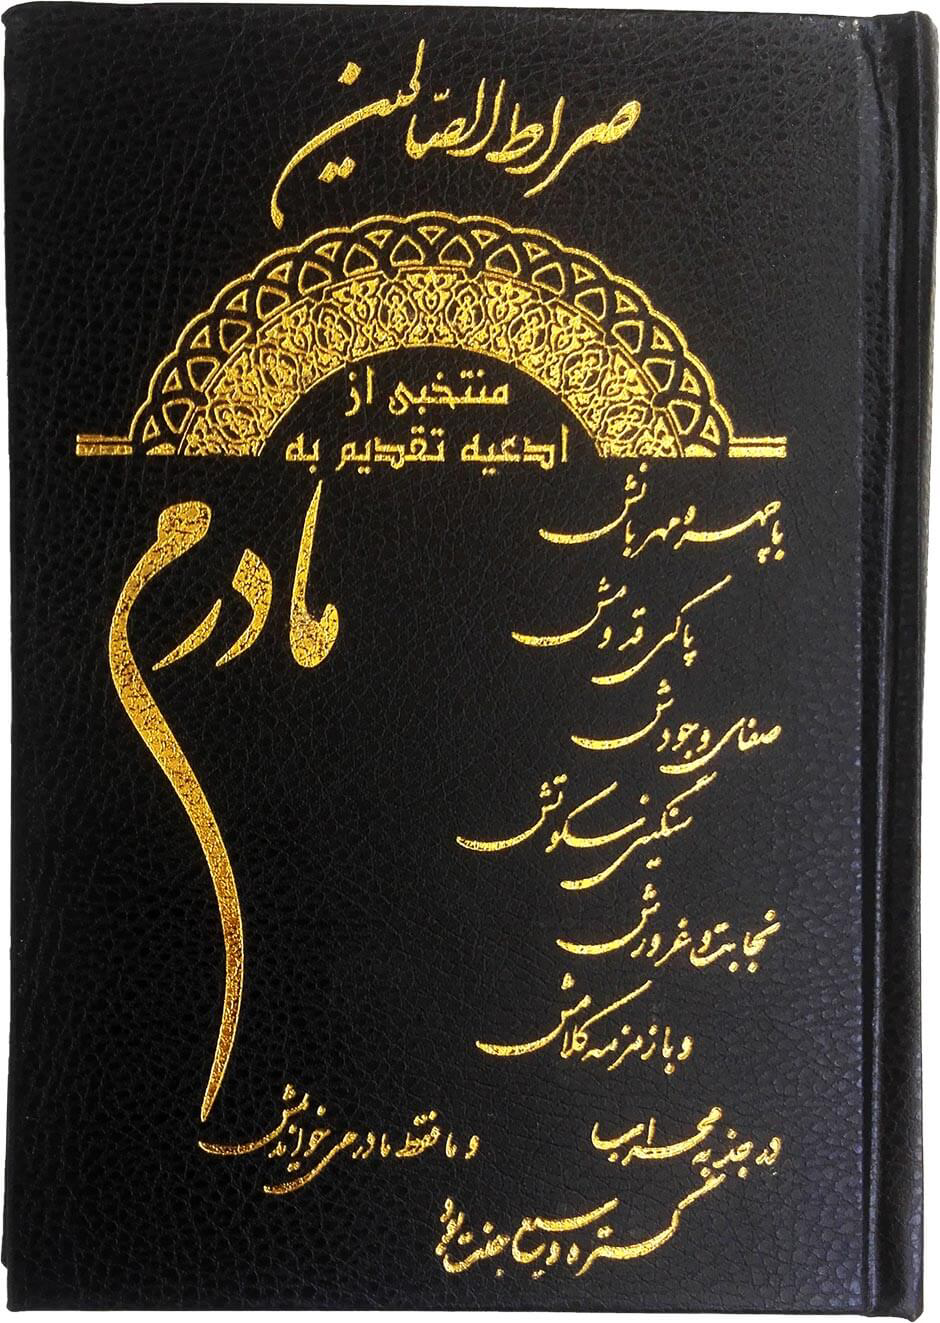 صراط الصّالحین
منتخبی از
ادعیه تقدیم به
مادرم
با چهره مهربانش
پاکی قدومش
صفای وجودش
سنگینی سکوتش
نجابت و غرورش
و با زمزمه کلامش
در جذبه محراب
و ما فقط مادر می خواندیمش
گستره وسیع جنت بود